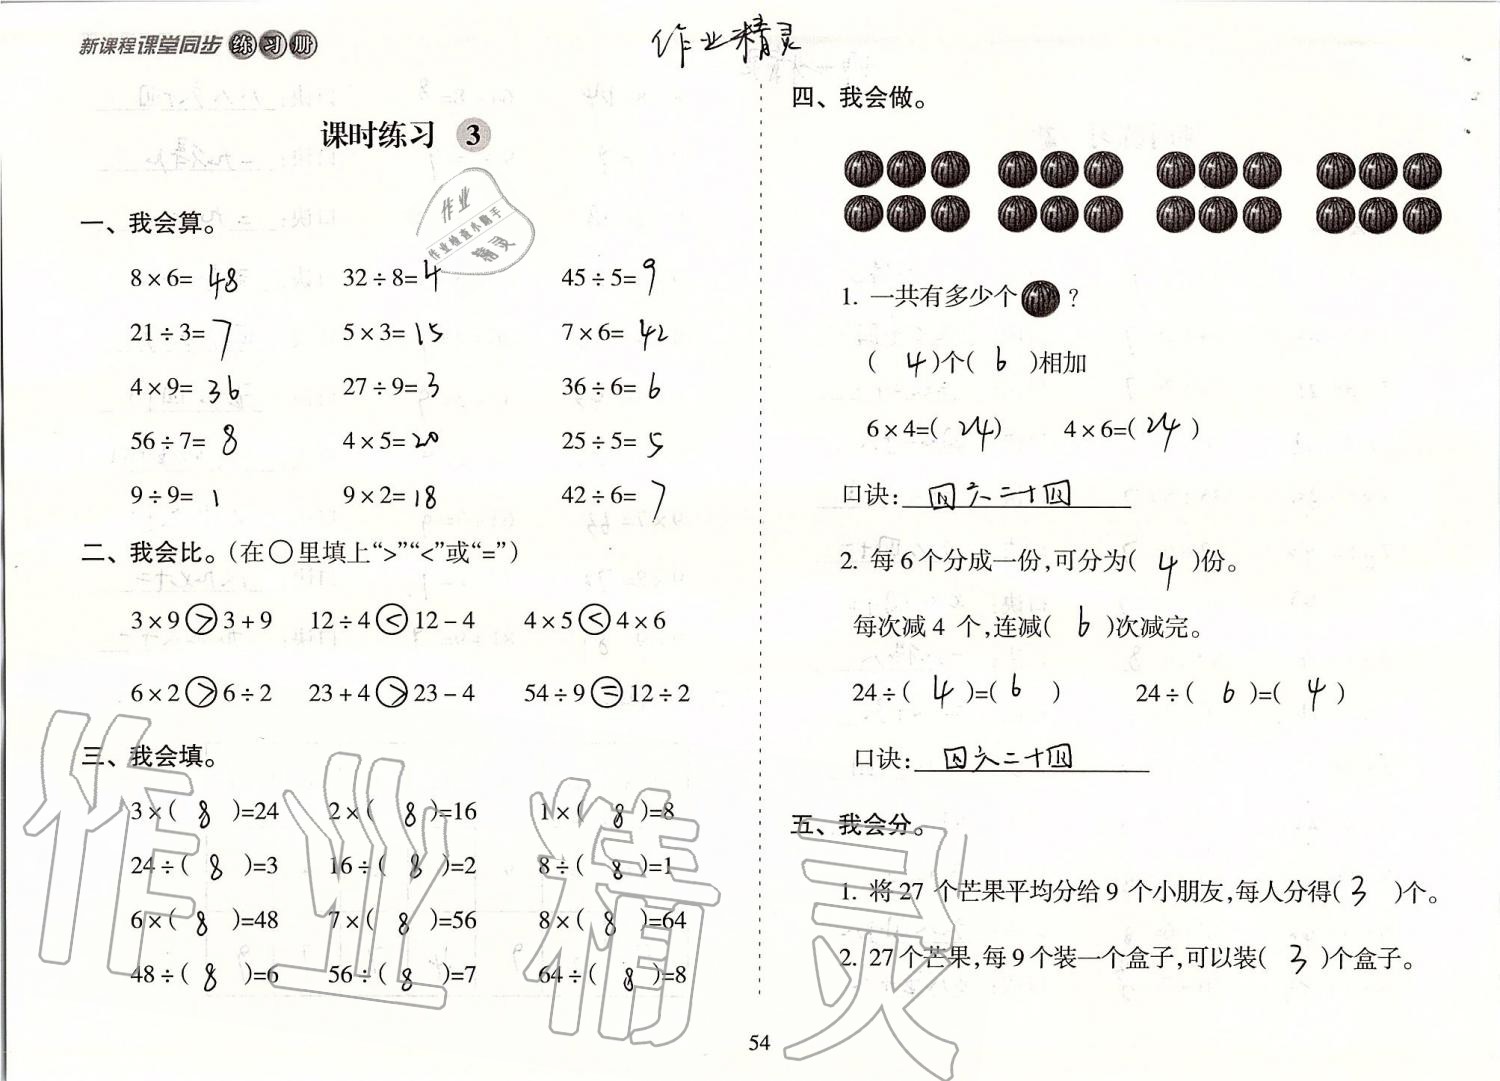 新课程课堂同步练习册
作业精灵
课时练习 3
作业
作业检查小助手
精灵
一、我会算。
8×6=48 32÷8=4 45÷5=9
21÷3=7 5×3=15 7×6=42
4×9=36 27÷9=3 36÷6=6
56÷7=8 4×5=20 25÷5=5
9÷9=1 9×2=18 42÷6=7
二、我会比。(在○里填上“>”“<”或“=”)
3×9>3+9 12÷4<12-4 4×5<4×6
6×2>6÷2 23+4>23-4 54÷9=12÷2
三、我会填。
3×(8)=24 2×(8)=16 1×(8)=8
24÷(8)=3 16÷(8)=2 8÷(8)=1
6×(8)=48 7×(8)=56 8×(8)=64
48÷(8)=6 56÷(8)=7 64÷(8)=8
作业精灵
四、我会做。
1. 一共有多少个?
(4)个(6)相加
6×4=(24) 4×6=(24)
口诀:四六二十四
2. 每6个分成一份,可分为(4)份。
每次减4个,连减(6)次减完。
24÷(4)=(6) 24÷(6)=(4)
口诀:四六二十四
五、我会分。
1. 将27个芒果平均分给9个小朋友,每人分得(3)个。
2. 27个芒果,每9个装一个盒子,可以装(3)个盒子。
54